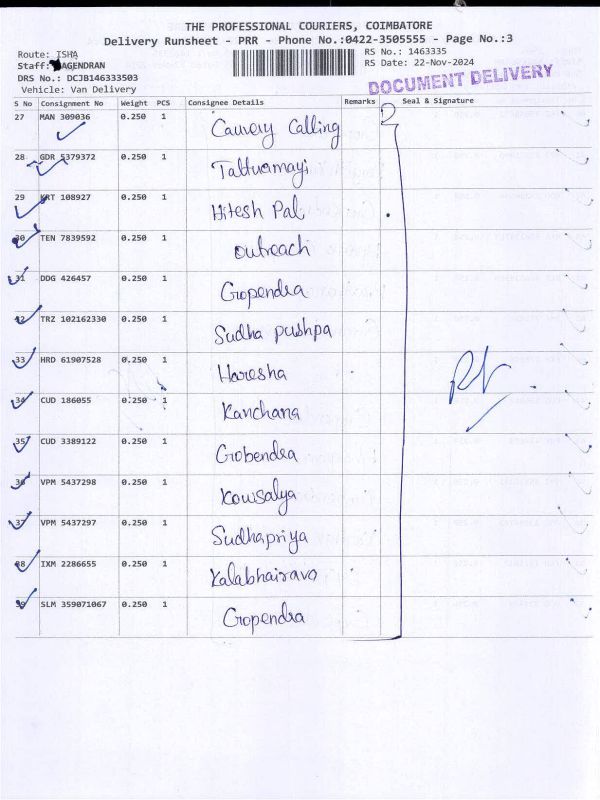 THE PROFESSIONAL COURIERS, COIMBATORE
Delivery Runsheet - PRR - Phone No.:0422-3505555 - Page No.:3
Route: ISHA
RS No.: 1463335
Staff: AGENDRAN
RS Date: 22-Nov-2024
DRS No.: DCJB146333503
DOCUMENT DELIVERY
Vehicle: Van Delivery
S No Consignment No Weight PCS Consignee Details Remarks Seal & Signature
27 MAN 309036 0.250 1 Cauvery Calling
28 GDR 5379372 0.250 1 Tattuamayi
29 KRT 108927 0.250 1 Hitesh Pal
30 TEN 7839592 0.250 1 outreach
31 DDG 426457 0.250 1 Gropendra
32 TRZ 102162330 0.250 1 Sudha pushpa
33 HRD 61907528 0.250 1 Haresha
34 CUD 186055 0.250 1 Kanchana
35 CUD 3389122 0.250 1 Grobendra
36 VPM 5437298 0.250 1 Kowsalya
37 VPM 5437297 0.250 1 Sudhapriya
38 IXM 2286655 0.250 1 Kalabhairavo
39 SLM 359071067 0.250 1 Gropendra